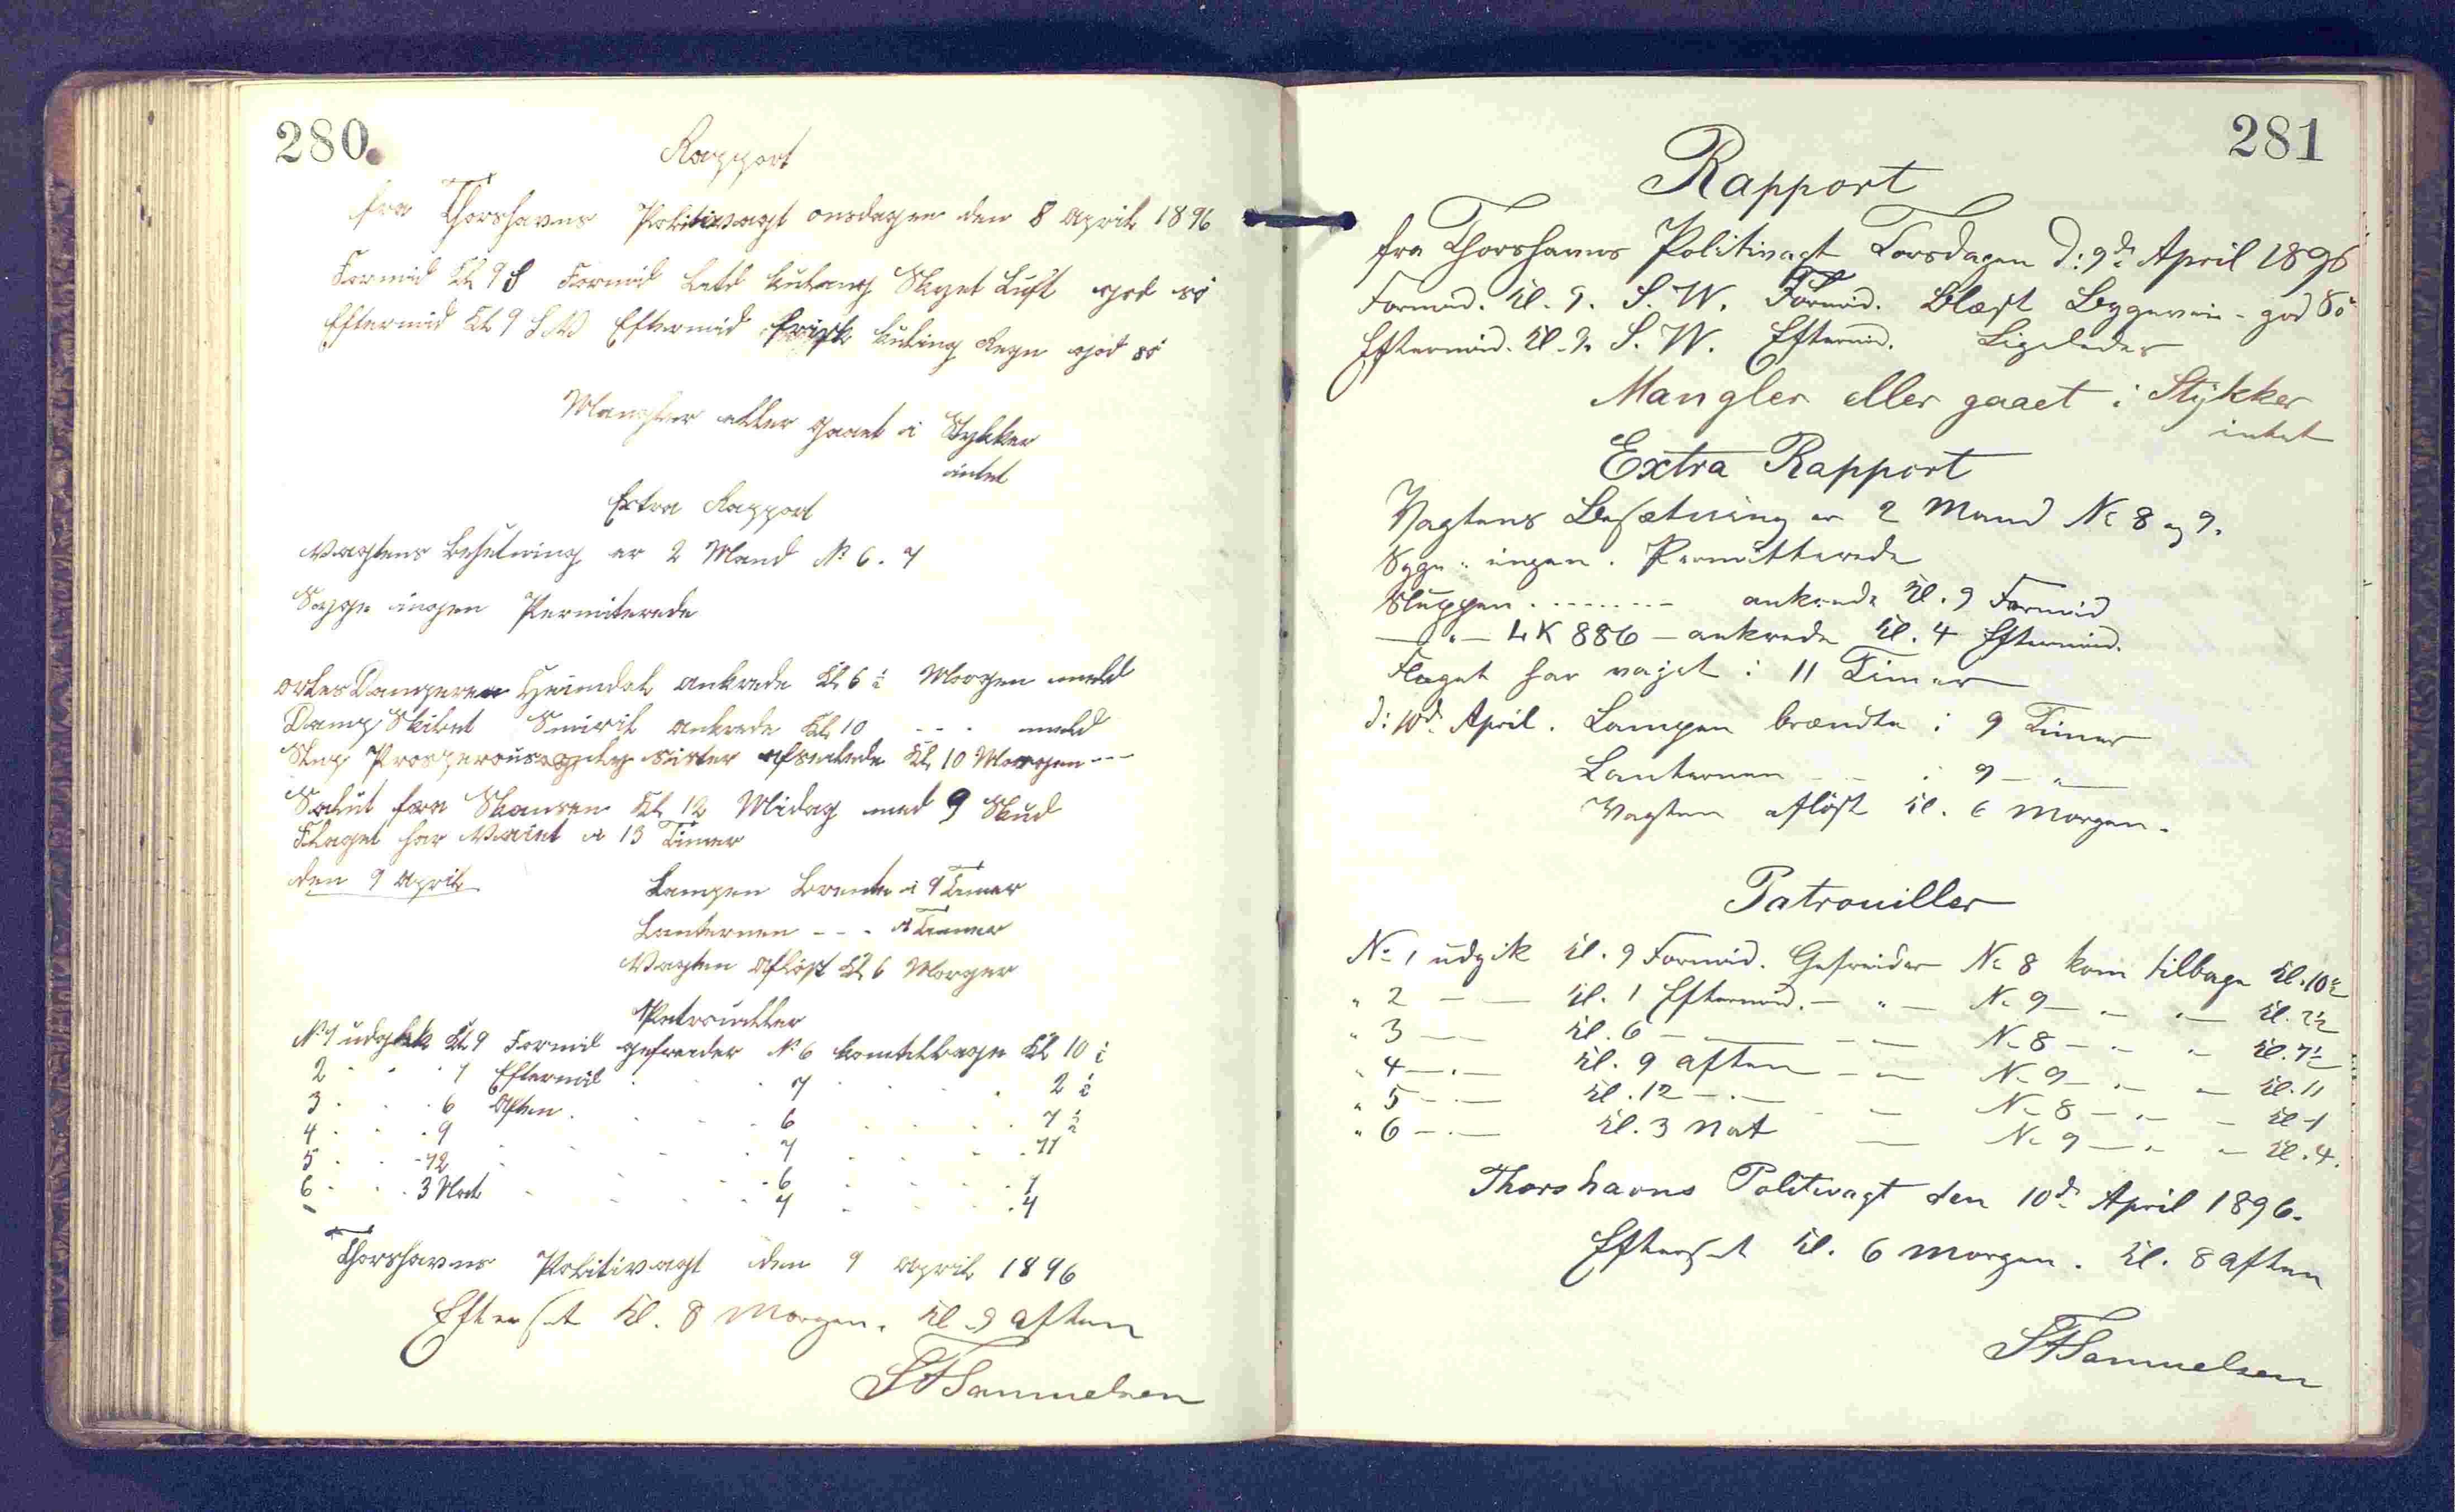 280.
Rapport
fra Thorshavns Politivagt onsdagen den 8 April 1896
Formid Kl 9 S Formid Letd kuling Skyet Luft god sö
Eftermid Kl 9 SW Eftermid frisk kuling Regn god sö
Mangler eller gaaet i Stykker
intet
Extra Rapport
Vagtens Besetning er 2 Mand No 6. 7
Syge ingen Permiterede
Heimdal ankrede Kl 6 ½ Morgen meld
Damp Skibet Smiril ankrede Kl 10 - - - meld
Slup Prosperous sister afseilede Kl 10 Morgen - - -
Salut fra Skansen Kl 12 Midag med 9 Skud
Flaget har Vaiet i 13 Timer
den 9 April
Lampen Brente i 9 Timer
Lanternen - - - Timer
Vagten Aflöst Kl 6 Morgen
Patrouiller
No 1 udgikk Kl 9 Formid gefreider No 6 kom tilbage Kl 10 ½
2 . . . 1 Eftermid . . . 7 . . . 2 ½
3 . . . 6 Aften . . . 6 . . . 7 ½
4 . . . 9 . . . 7 . . . 11
5 . . . 12 . . . 6 . . . 1
6 . . . 3 Nat . . . 7 . . . 4
Thorshavns Politivagt den 9 April 1896
Efterset Kl. 8 Morgen. Kl. 9 Aften
Samuelsen
281
Rapport
fra Thorshavns Politivagt Torsdagen d: 9de April 1896
Formid. Kl. 9. S. W. Formid. Blæst Bygevei - god Sö
Eftermid. Kl. 9. S. W. Eftermid. Ligeledes
Mangler eller gaaet i Stykker
intet
Extra Rapport
Vagtens Besætning er 2 Mand No 8 og 9.
Syge " ingen. Permitterede
Sluppen . - - - - - - - ankrede Kl. 9 Formid
— " — LK 886 — ankrede Kl. 4 Eftermid.
Flaget har vajet i 11 Timer
d: 10de April. Lampen brændte i 9 Timer
Lanternen — — i 9 — " —
Vagten aflöst Kl. 6 Morgen.
Patrouiller
No 1 udgik Kl. 9 Formid. Gefreider No 8 kom tilbage Kl. 10½
" 2 — — Kl. 1 Eftermid. — " — No 9 — " — Kl. 2½
" 3 — — Kl. 6 — — — No 8 — " — Kl. 7½
" 4 — " — Kl. 9 Aften — — No 9 — " — Kl. 11
" 5 — " — Kl. 12 — " — — No 8 — " — Kl 1
" 6 — " — Kl. 3 Nat — No 9 — " — Kl. 4.
Thorshavns Politivagt den 10de April 1896.
Efterset Kl. 6 Morgen. Kl. 8 Aften
Samuelsen